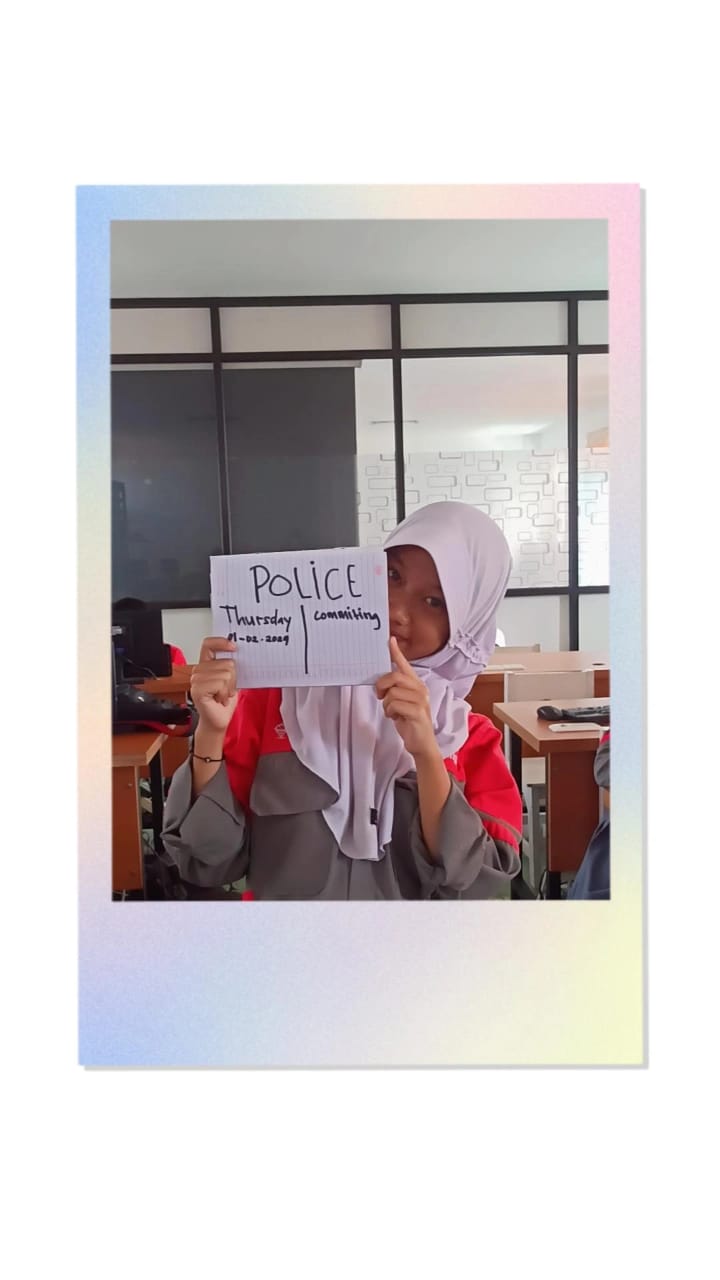 POLICE
Thursday
01-02-2024
Commiting